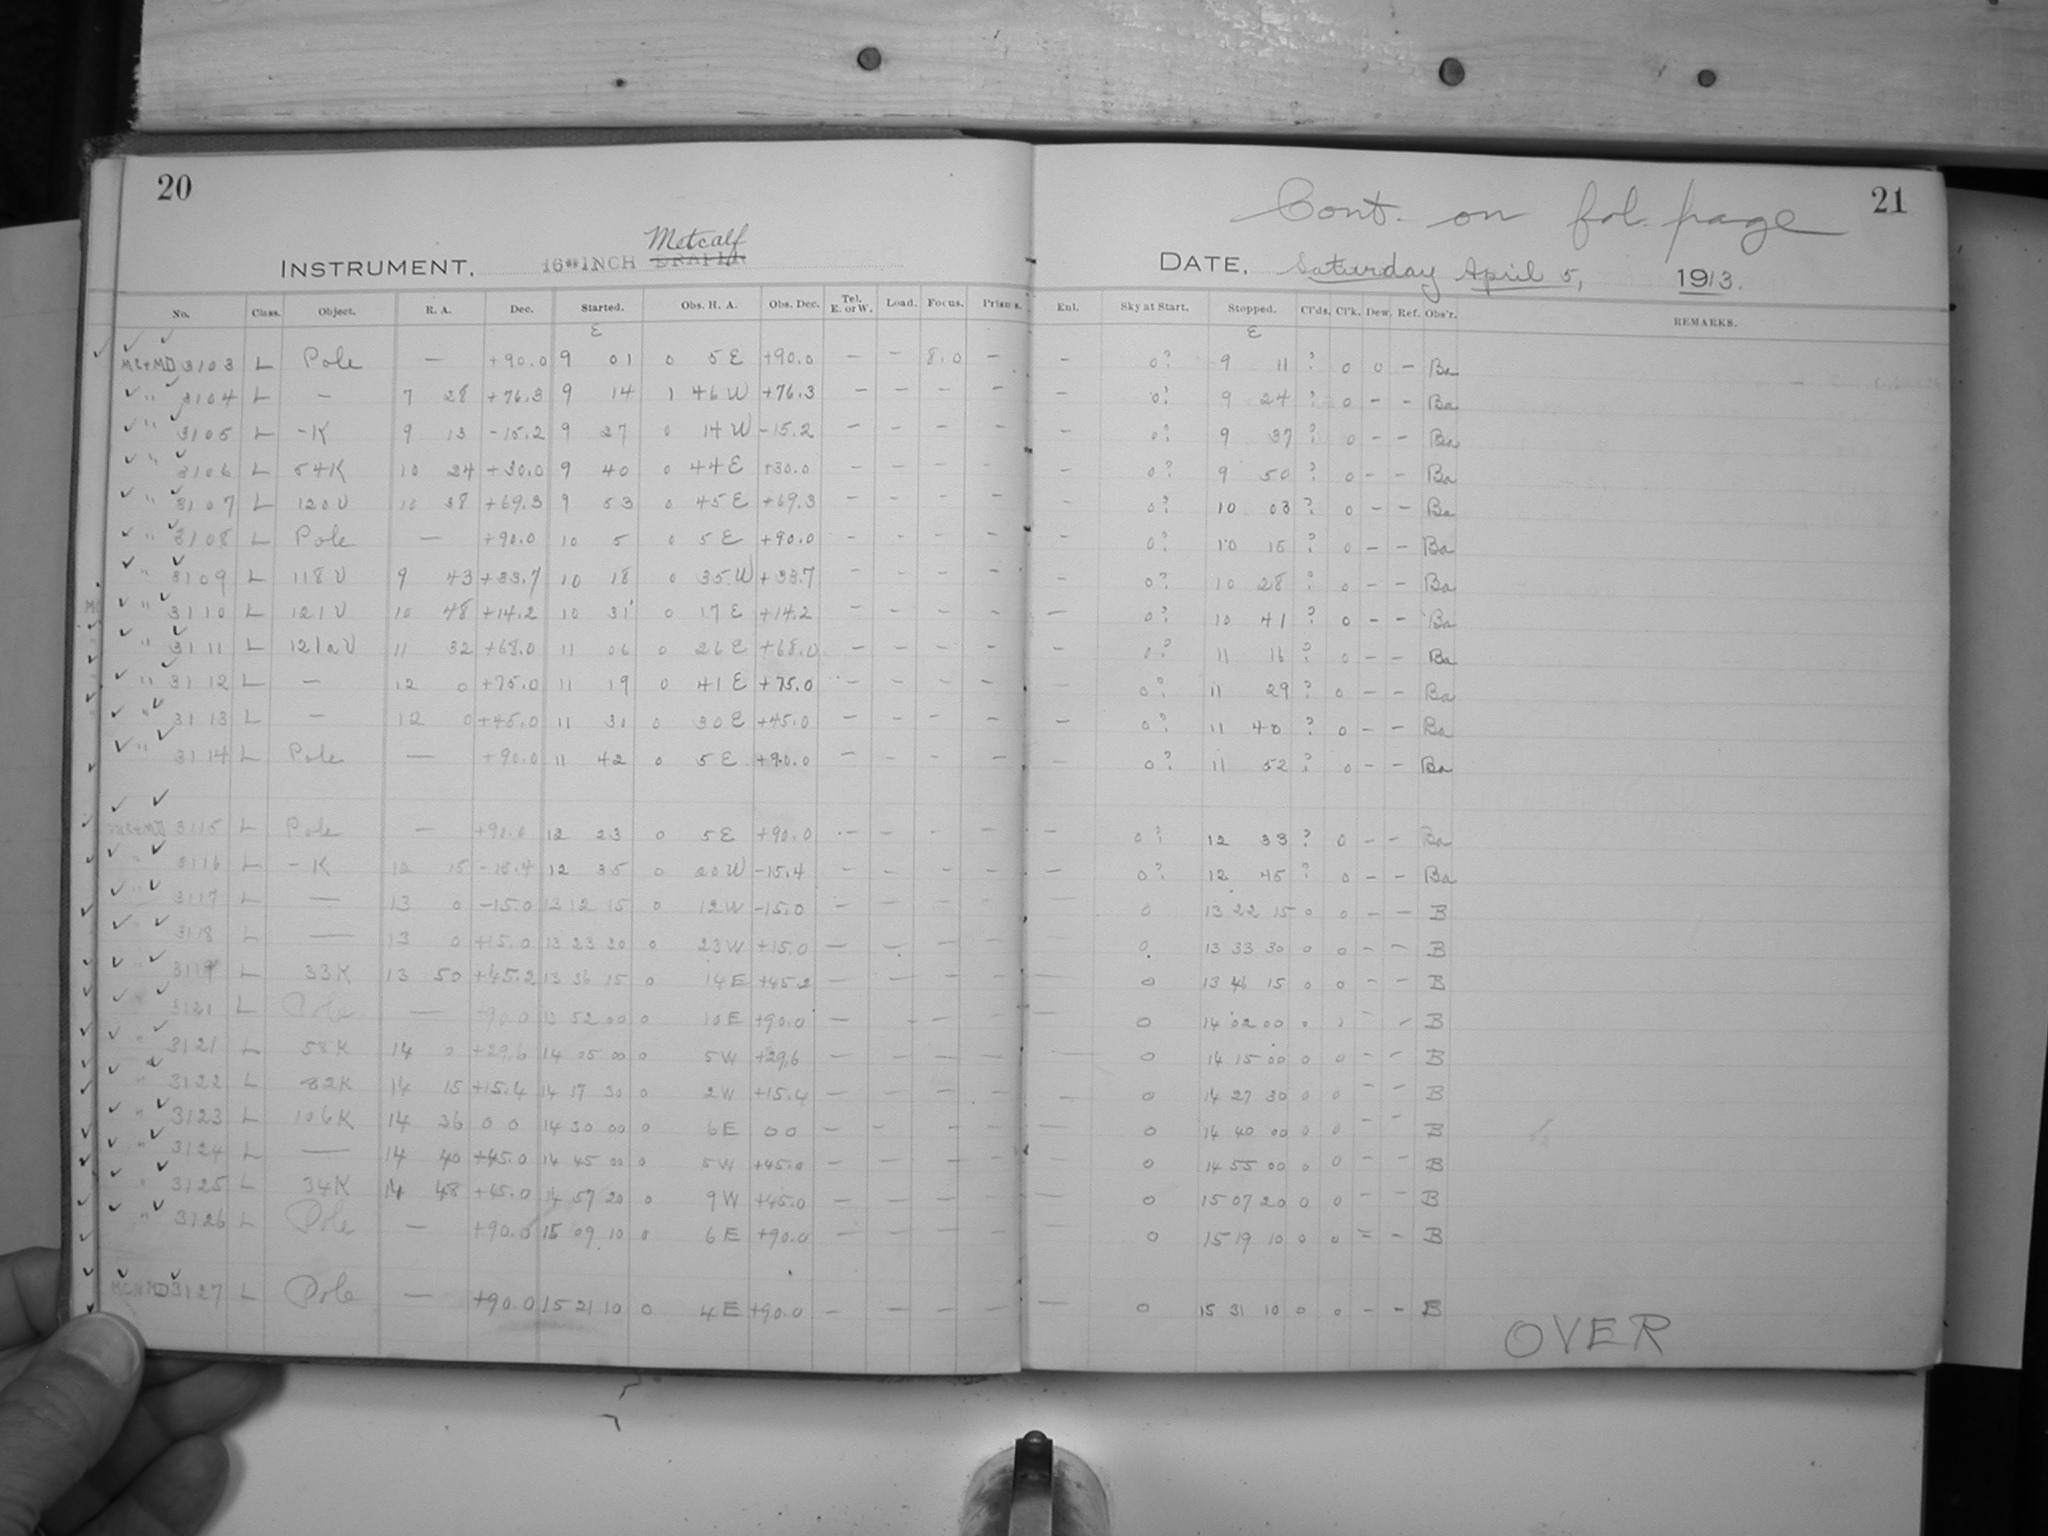 20
21
Cont. on fol. page
Metcalf
INSTRUMENT. 16 INCH DRAPER
DATE. Saturday April 5, 1913.
No. Class. Object. R. A. Dec. Started. Obs. H. A. Obs. Dec. Tel. E. or W. Load. Focus. Prisms. Enl. Sky at Start. Stopped. Cl'ds. Cl'k. Dew. Ref. Obs'r. REMARKS.
E E
MC+MD 3103 L Pole — +90.0 9 01 0 5 E +90.0 — — 8.0 — — 0? 9 11 ? 0 0 — Ba
" 3104 L — 7 28 +76.3 9 14 1 46 W +76.3 — — — — — 0? 9 24 ? 0 — — Ba
" 3105 L -K 9 13 -15.2 9 27 0 14 W -15.2 — — — — — 0? 9 37 ? 0 — — Ba
" 3106 L 54K 10 24 +30.0 9 40 0 44 E +30.0 — — — — — 0? 9 50 ? 0 — — Ba
" 3107 L 120U 10 38 +69.3 9 53 0 45 E +69.3 — — — — — 0? 10 03 ? 0 — — Ba
" 3108 L Pole — +90.0 10 5 0 5 E +90.0 — — — — — 0? 10 15 ? 0 — — Ba
" 3109 L 118U 9 43 +33.7 10 18 0 35 W +33.7 — — — — — 0? 10 28 ? 0 — — Ba
" 3110 L 121U 10 48 +14.2 10 31 0 17 E +14.2 — — — — — 0? 10 41 ? 0 — — Ba
" 3111 L 121aU 11 32 +68.0 11 06 0 26 E +68.0 — — — — — 0? 11 16 ? 0 — — Ba
" 3112 L — 12 0 +75.0 11 19 0 41 E +75.0 — — — — — 0? 11 29 ? 0 — — Ba
" 3113 L — 12 0 +45.0 11 31 0 30 E +45.0 — — — — — 0? 11 40 ? 0 — — Ba
" 3114 L Pole — +90.0 11 42 0 5 E +90.0 — — — — — 0? 11 52 ? 0 — — Ba
MC+MD 3115 L Pole — +90.0 12 23 0 5 E +90.0 — — — — — 0? 12 33 ? 0 — — Ba
" 3116 L -K 12 15 -15.4 12 35 0 20 W -15.4 — — — — — 0? 12 45 ? 0 — — Ba
" 3117 L — 13 0 -15.0 13 12 15 0 12 W -15.0 — — — — — 0 13 22 15 0 0 — — B
" 3118 L — 13 0 +15.0 13 23 30 0 23 W +15.0 — — — — — 0 13 33 30 0 0 — — B
" 3119 L 33K 13 50 +45.2 13 36 15 0 14 E +45.2 — — — — — 0 13 46 15 0 0 — — B
" 3121 L Pole — +90.0 13 52 00 0 10 E +90.0 — — — — — 0 14 02 00 0 0 — — B
" 3121 L 58K 14 0 +29.6 14 05 00 0 5 W +29.6 — — — — — 0 14 15 00 0 0 — — B
" 3122 L 82K 14 15 +15.4 14 17 30 0 2 W +15.4 — — — — — 0 14 27 30 0 0 — — B
" 3123 L 106K 14 36 0 0 14 30 00 0 6 E 0 0 — — — — — 0 14 40 00 0 0 — — B
" 3124 L — 14 40 +45.0 14 45 00 0 5 W +45.0 — — — — — 0 14 55 00 0 0 — — B
" 3125 L 34K 14 48 +45.0 14 57 20 0 9 W +45.0 — — — — — 0 15 07 20 0 0 — — B
" 3126 L Pole — +90.0 15 09 10 0 6 E +90.0 — — — — — 0 15 19 10 0 0 — — B
MC+MD 3127 L Pole — +90.0 15 21 10 0 4 E +90.0 — — — — — 0 15 31 10 0 0 — — B
OVER